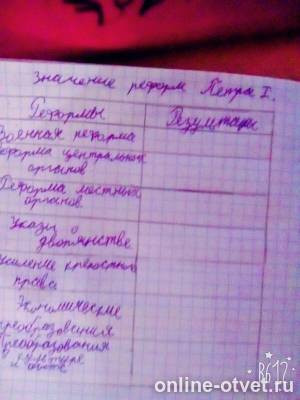 Значение реформ Петра I.
Реформы Резултаты
Военная реформа
еформа центральных
органов
Реформа местных
органов.
Указы о
дворянстве
силение крепостного
права
Экономические
преобразования
Преобразования
в культуре
и быте
B612
online-otvet.ru